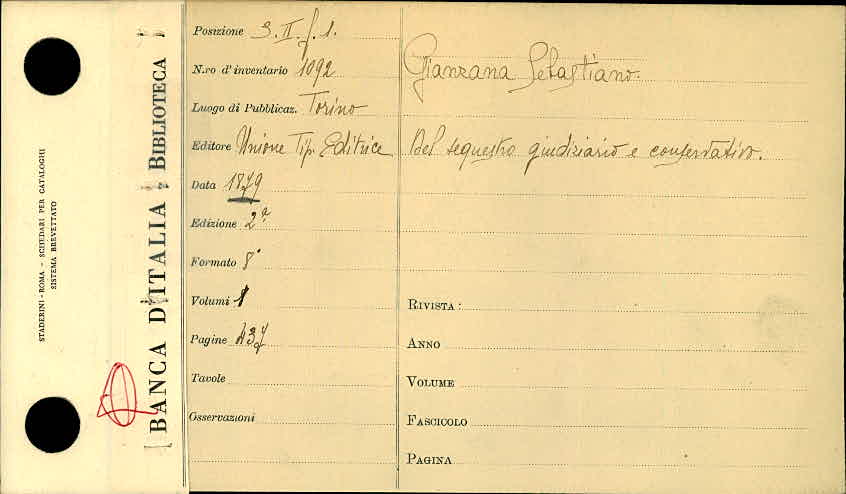 STADERINI - ROMA - SCHEDARI PER CATALOGHI
SISTEMA BREVETTATO
BANCA D'ITALIA - BIBLIOTECA
Posizione 3. II. f. 1.
N.ro d'inventario 1092
Luogo di Pubblicaz. Torino
Editore Unione Tip. Editrice
Data 1879
Edizione 2ª
Formato 8°
Volumi 1
Pagine 437
Tavole
Osservazioni
Gianzana Sebastiano.
Del sequestro giudiziario e conservativo.
RIVISTA:
ANNO
VOLUME
FASCICOLO
PAGINA